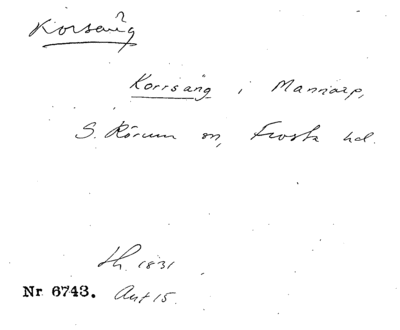 Korsång
?
Korrsång i Mannarp,
S. Rörum sn, Frosta hd.
lh. 1831
Nr 6743. Akt 15.